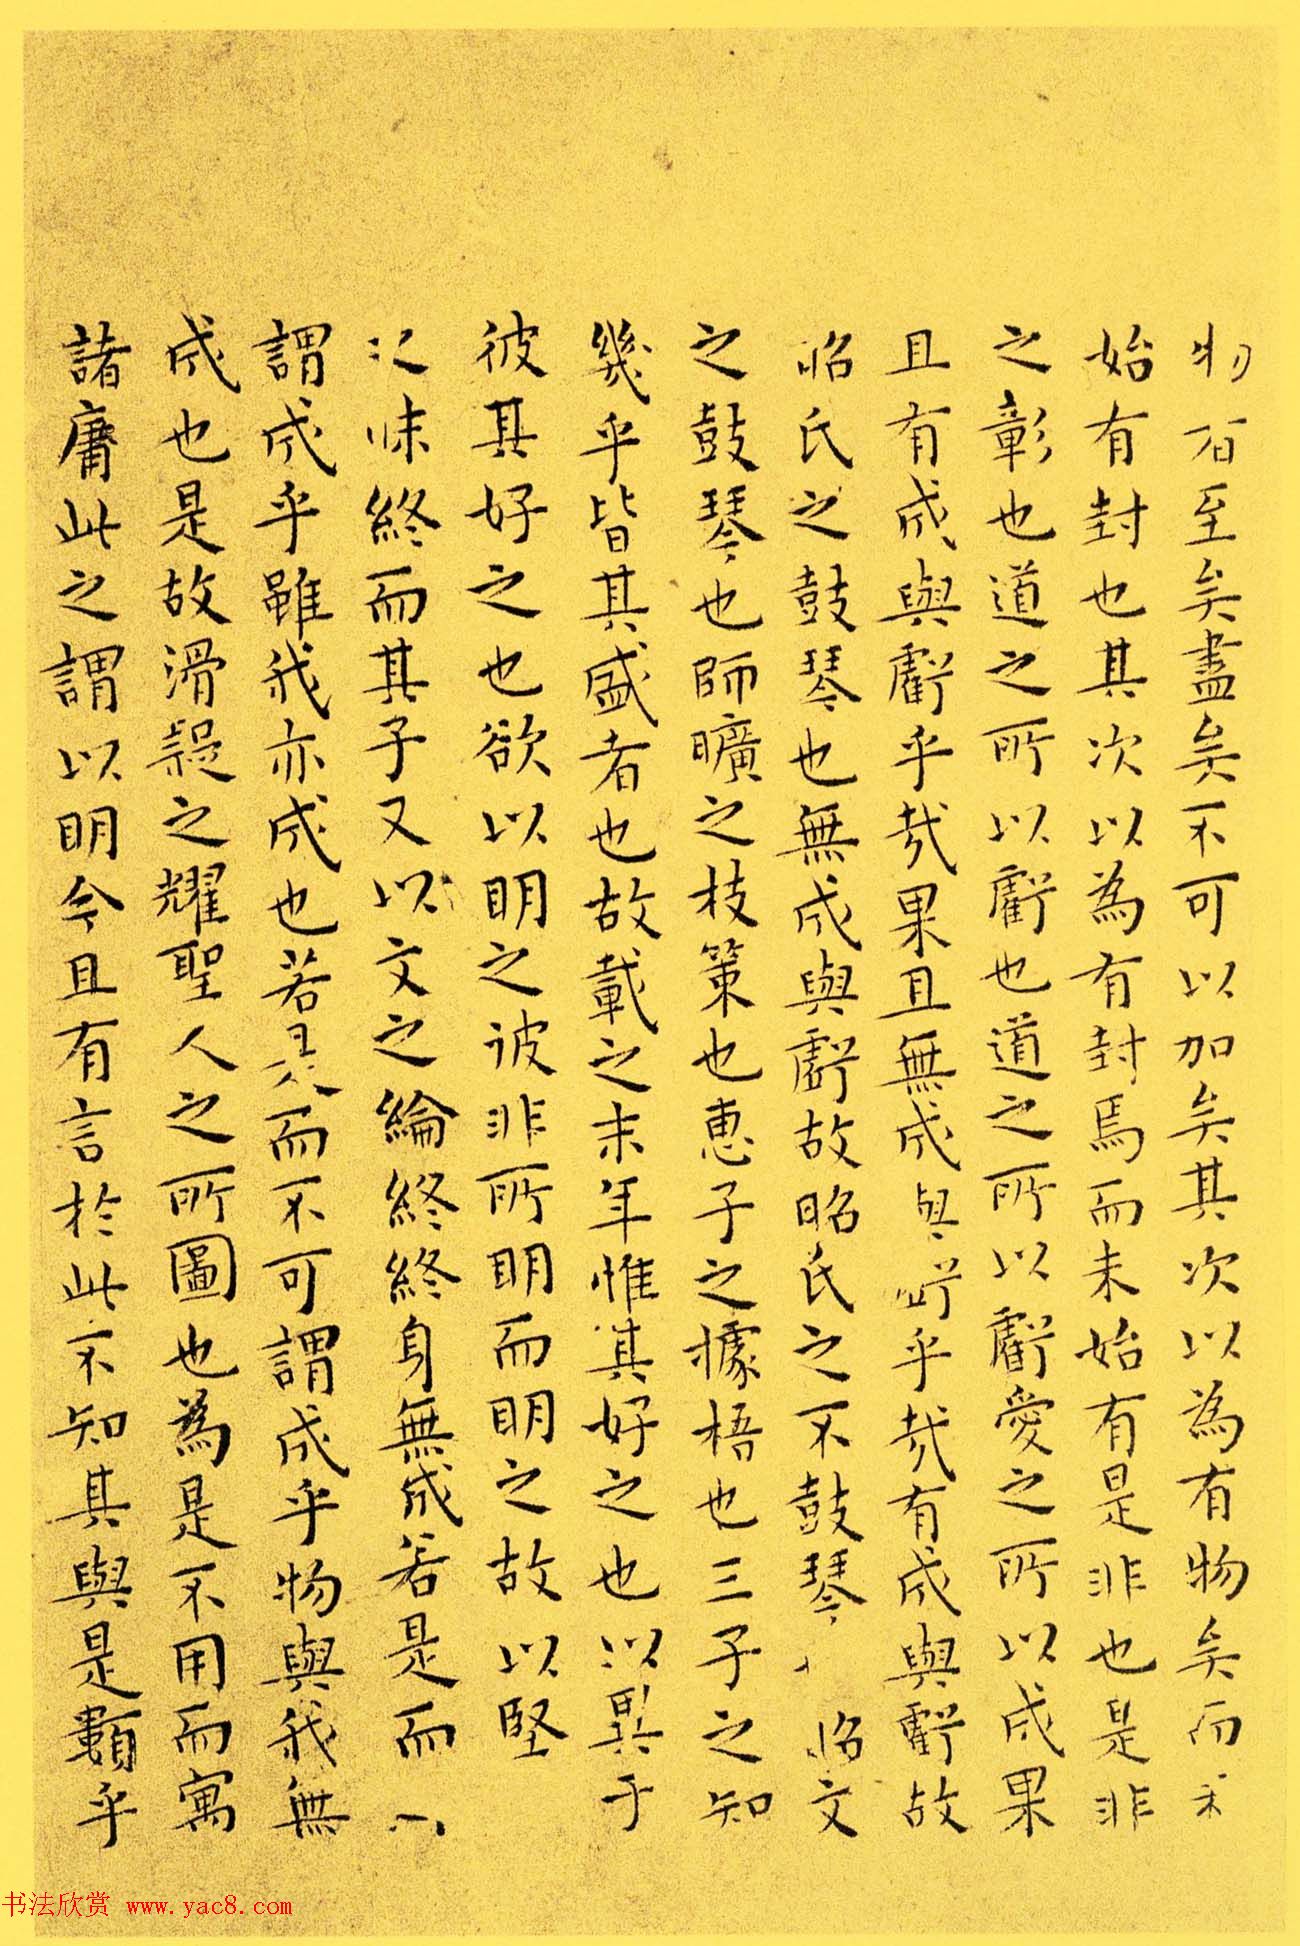 物者至矣盡矣不可以加矣其次以為有物矣而未
始有封也其次以為有封焉而未始有是非也是非
之彰也道之所以虧也道之所以虧愛之所以成果
且有成與虧乎哉果且無成與虧乎哉有成與虧故
昭氏之鼓琴也無成與虧故昭氏之不鼓琴昭文
之鼓琴也師曠之枝策也惠子之據梧也三子之知
幾乎皆其盛者也故載之末年惟其好之也以異于
彼其好之也欲以明之彼非所明而明之故以堅
之昧終而其子又以文之綸終終身無成若是而
謂成乎雖我亦成也若是而不可謂成乎物與我無
成也是故滑疑之耀聖人之所圖也為是不用而寓
諸庸此之謂以明今且有言於此不知其與是類乎
书法欣赏 www.yac8.com